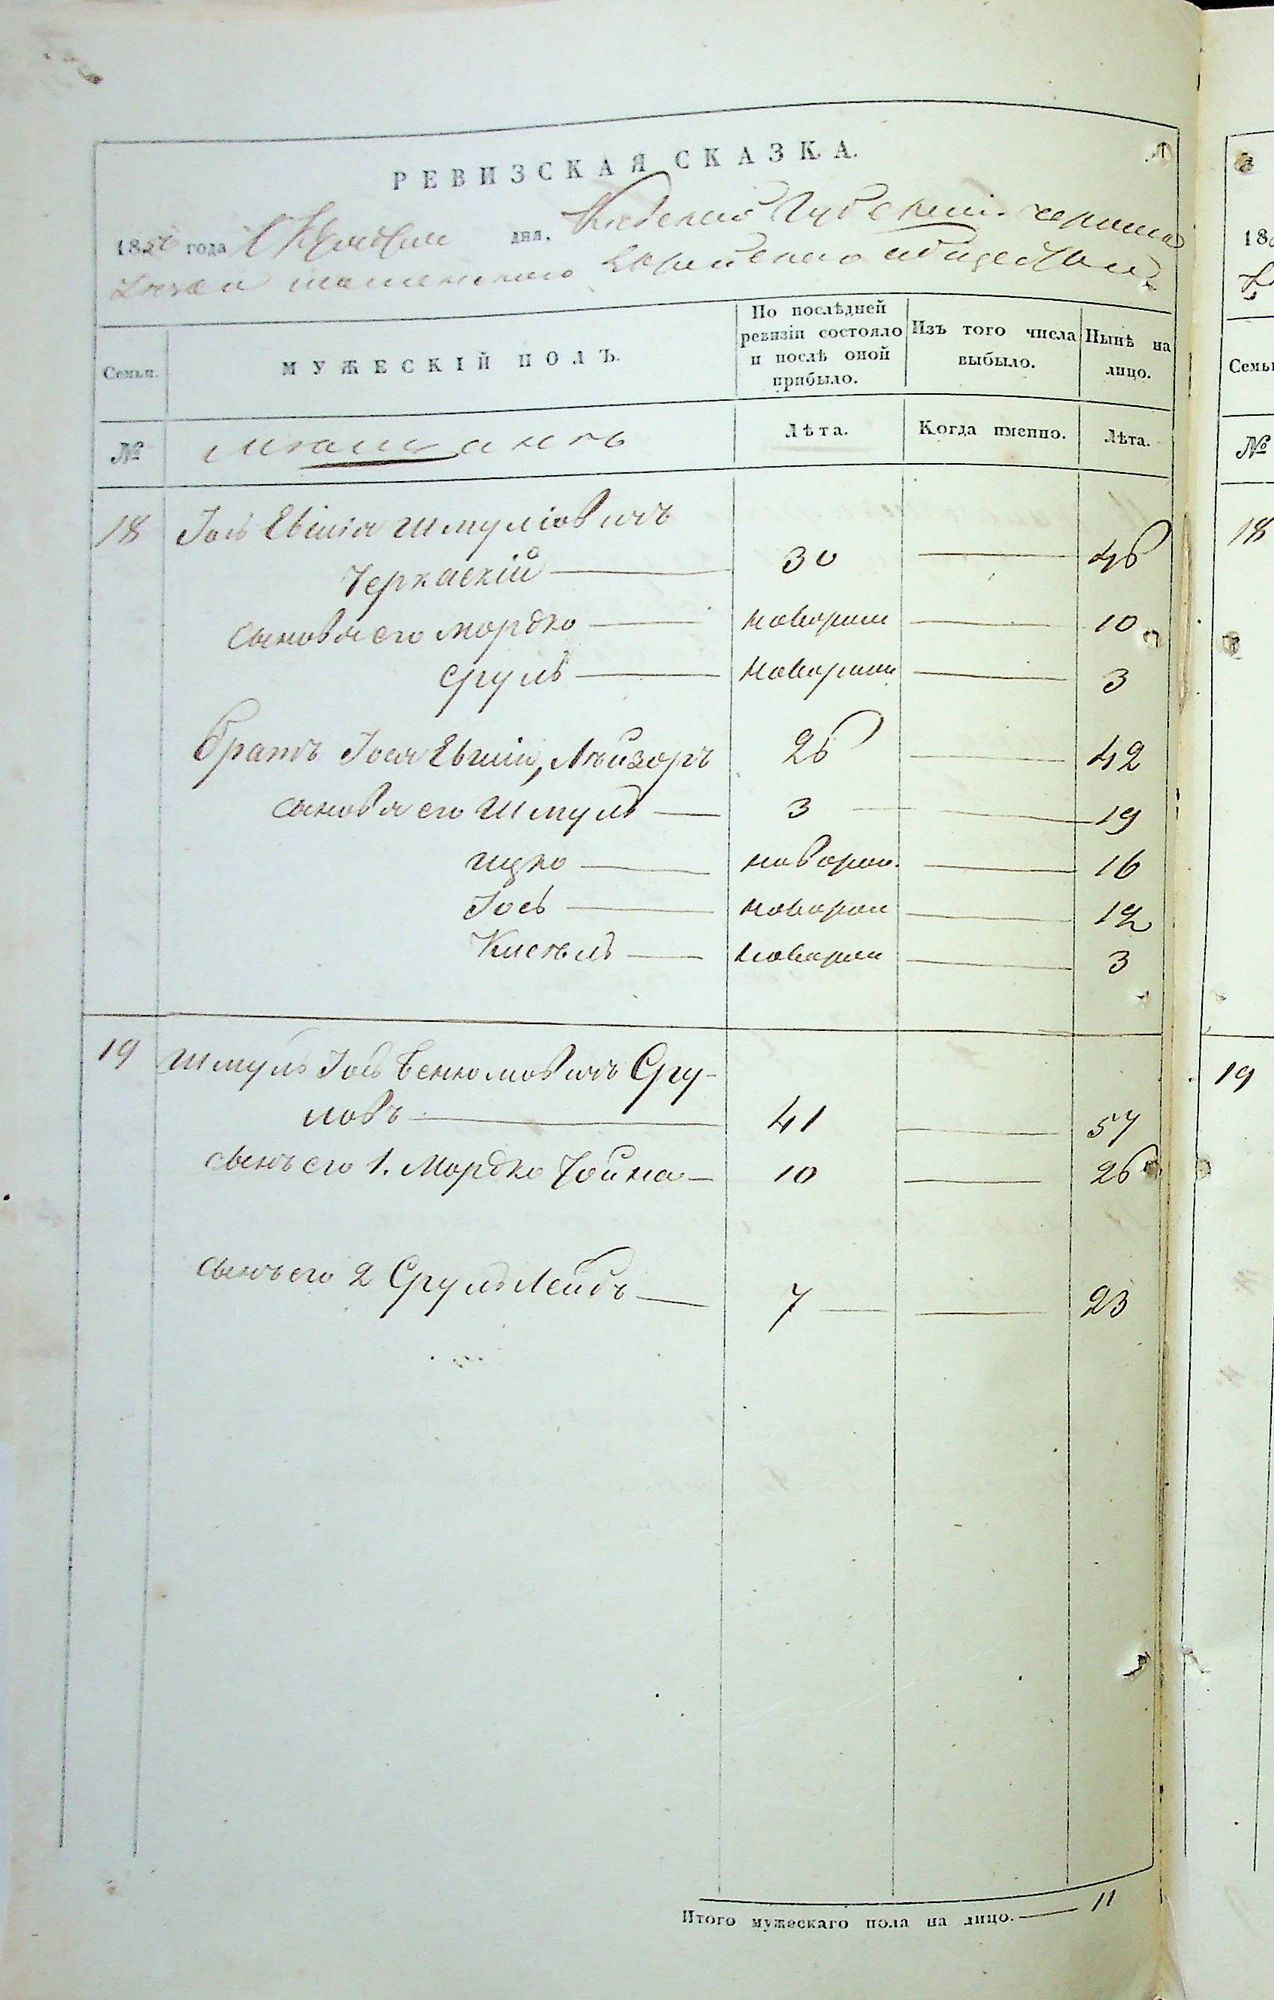 РЕВИЗСКАЯ СКАЗКА.
1850 года Октября дня. Кіевской Губерніи
Еврейскаго общества
Семьи. МУЖЕСКІЙ ПОЛЪ. По послѣдней ревизіи состояло и послѣ оной прибыло. Изъ того числа выбыло. Нынѣ на лицо.
№ мѣщанъ Лѣта. Когда именно. Лѣта.
18 Іось Евсія Шмуліовичъ
Черкаскій 30 46
сыновья его Мордко новорож 10
Сруль новорож 3
братъ Іося Евсіи, Лейзоръ 26 42
сыновья его Шмуль 3 19
Ицко новорож. 16
Іось новорож 12
Кисель новорож 3
19 Шмуль Іось Беньюмовичъ Сру-
ловъ 41 57
сынъ его 1. Мордко Хойна 10 26
сынъ его 2 Сруль Лейбъ 7 23
Итого мужескаго пола на лицо. 11
18
Семьи
№
18
19